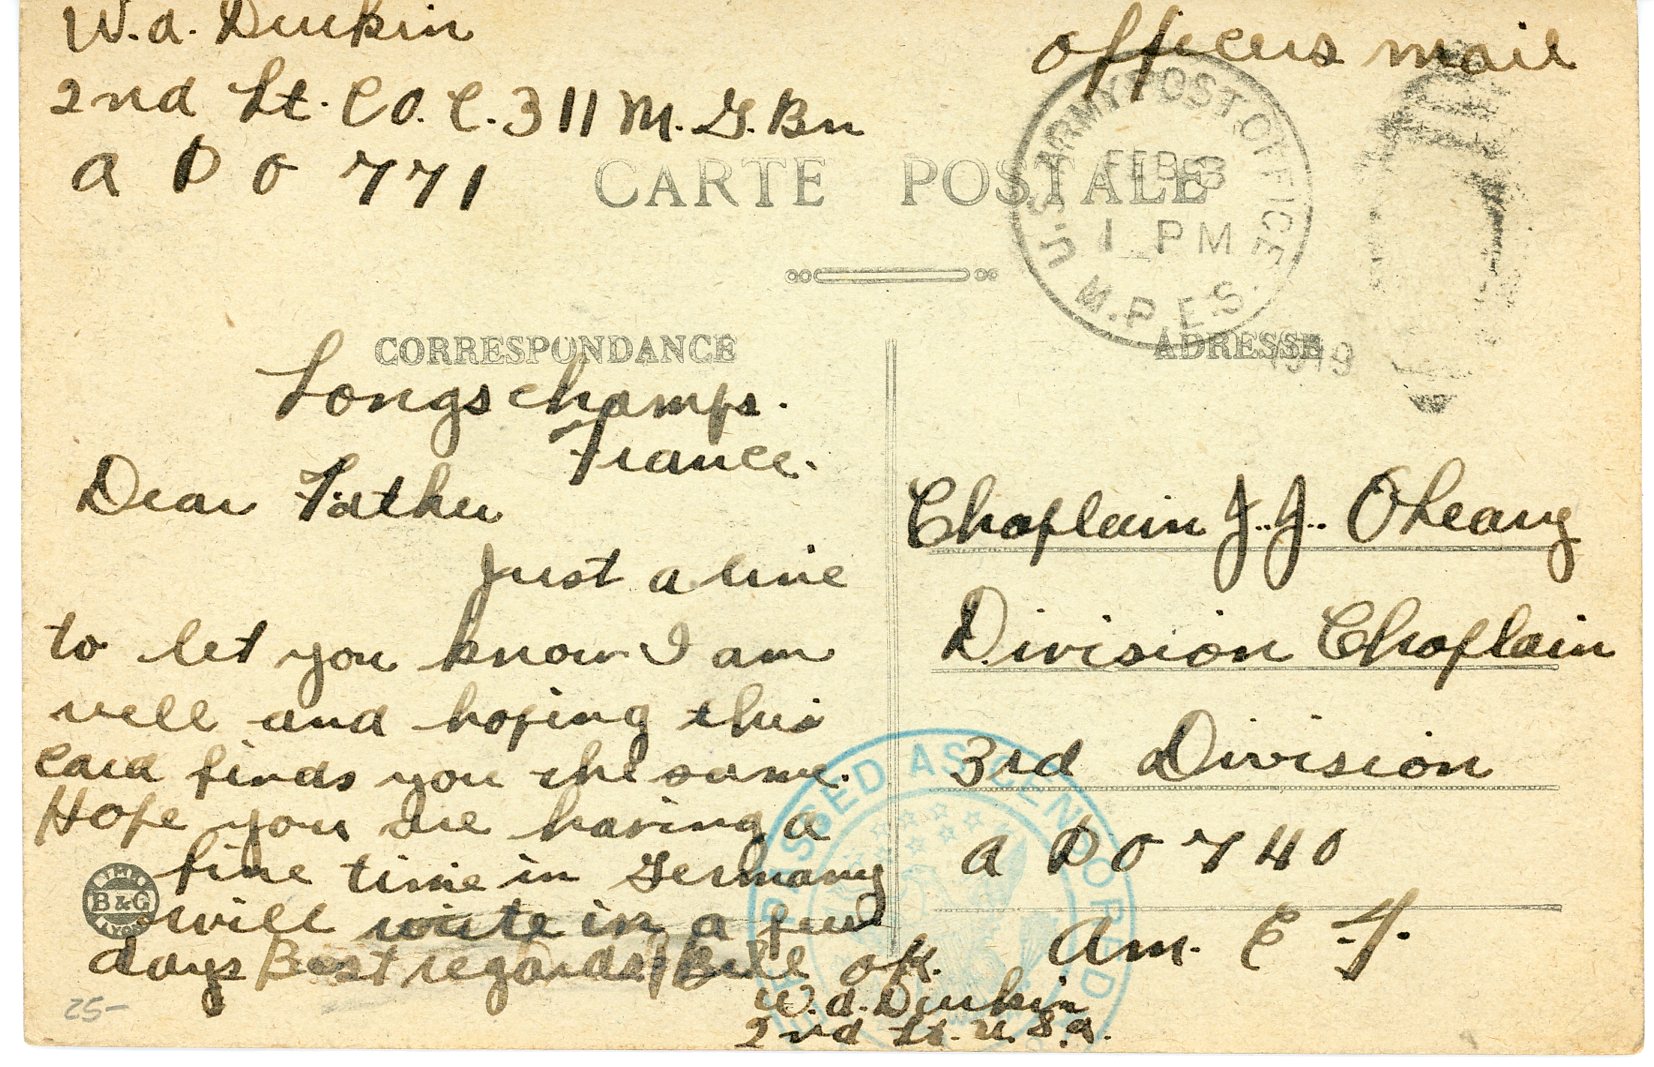 W.A. Durkin
Officers mail
2nd Lt. CO. C. 311 M.G. Bn
A P O 771
CARTE POSTALE
U.S. ARMY POST OFFICE
FEB 3
1 PM
M.P.E.S.
1919
CORRESPONDANCE
ADRESSE
Longschamps.
France.
Dear Father
Just a line
to let you know I am
well and hoping this
card finds you the same.
Hope you are having a
fine time in Germany
will write in a few
days Best regards Bill
Chaplain J.J. OLeary
Division Chaplain
3rd Division
A P O 740
Am. E.F.
PASSED AS CENSORED
B&G
LYON
OK.
W.A. Durkin
2nd Lt. U.S.A.
25-